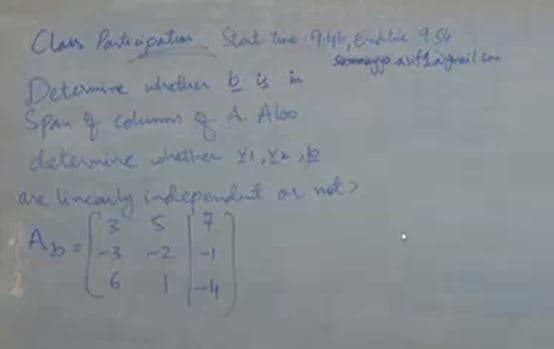 Class Participation Start time 9:46, End time 9.54
Determine whether b is in
Span of columns of A. Also
determine whether v1, v2, b
are linearly independent or not?
Ab = [ 3 5 | 7
-3 -2 | -1
6 1 | -4 ]